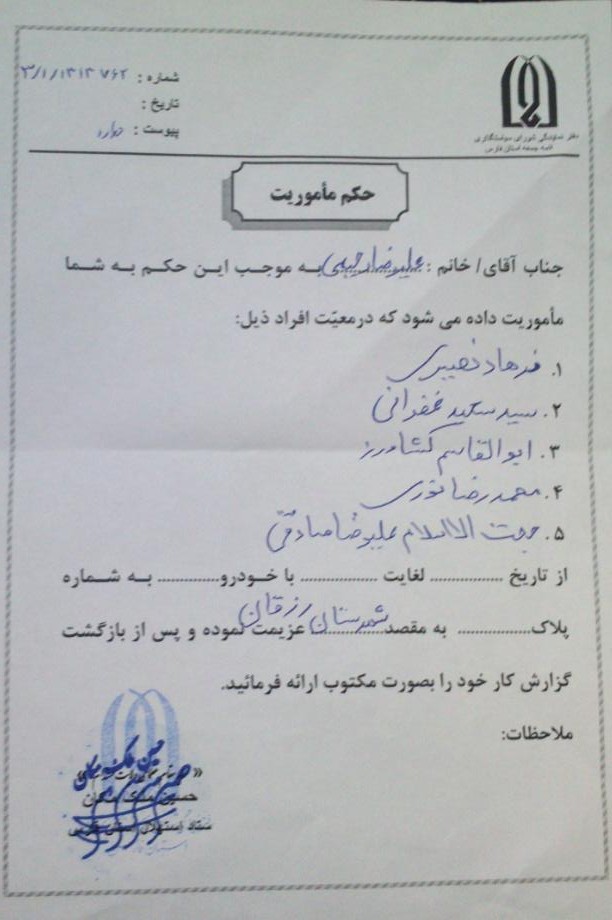 شماره : ۳/۱/۱۳۱۳۷۶۲
تاریخ :
پیوست : دارد
دفتر نمایندگی شورای سیاستگذاری
ائمه جمعه استان فارس
حکم مأموریت
جناب آقای/ خانم : علیرضا رحیمی به موجب این حکم به شما
مأموریت داده می شود که درمعیّت افراد ذیل:
۱. فرهاد نصیری
۲. سید سعید غفرانی
۳. ابوالقاسم کشاورز
۴. محمدرضا نوری
۵. حجت الاسلام علیرضا صادقی
از تاریخ ................. لغایت ................. با خودرو.............. به شماره
پلاک................. به مقصد شهرستان رزقان عزیمت نموده و پس از بازگشت
گزارش کار خود را بصورت مکتوب ارائه فرمائید.
ملاحظات:
حسین ملک مکان
ستاد استهلال استان فارس